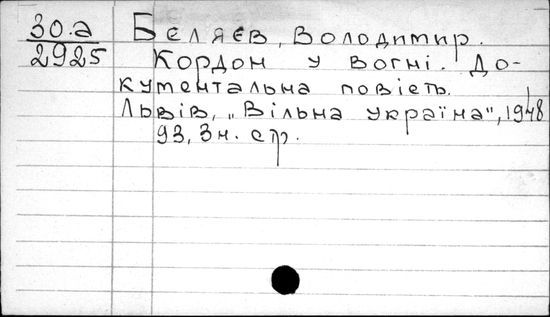 30.а
2925
Бєляєв, Володимир.
Кордон у вогні. До-
кументальна повість.
Львів, „Вільна україна", 1948
93, 3 н. стр.